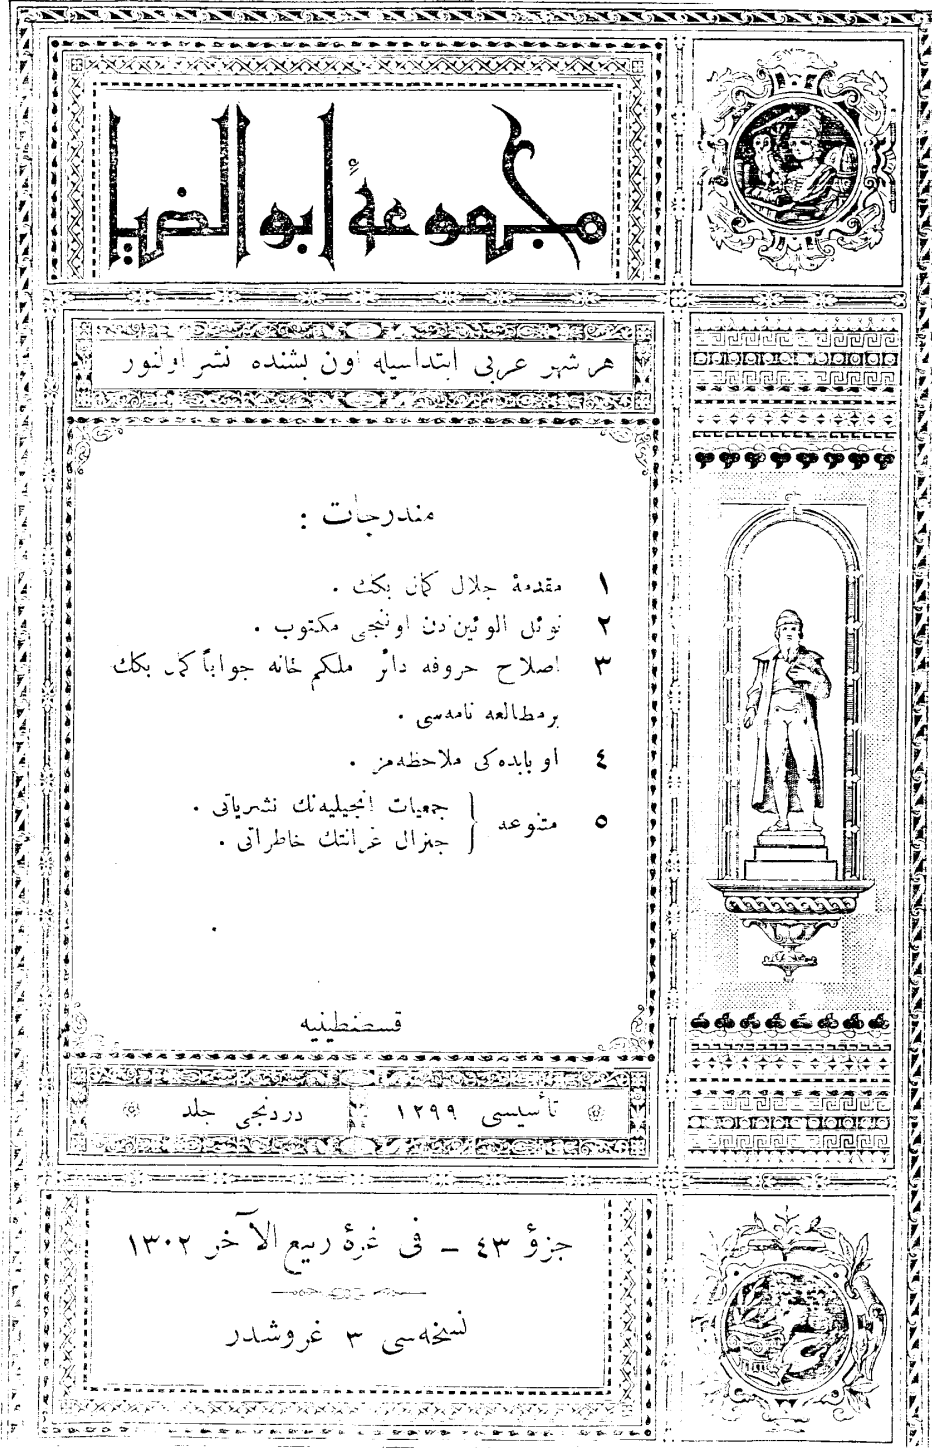 مجموعهٔ ابوالضیا
هر شهر عربی ابتداسیله اون بشنده نشر اولنور
مندرجات :
١ مقدمهٔ جلال کمال بکك .
٢ نوئل الوئیزدن اوننجی مکتوب .
٣ اصلاح حروفه دائر ملکم خانه جواباً کمال بکك
بر مطالعه نامه‌سی .
٤ او بابده‌کی ملاحظه‌مز .
٥ متنوعه { جمعیات انجیلیه‌نك نشریاتی .
جنرال غرانتك خاطراتی .
قسطنطینیه
تأسیسی ١٢٩٩
دردنجی جلد
جزؤ ٤٣ – فی غرهٔ ربیع الآخر ١٣٠٢
نسخه‌سی ٣ غروشدر